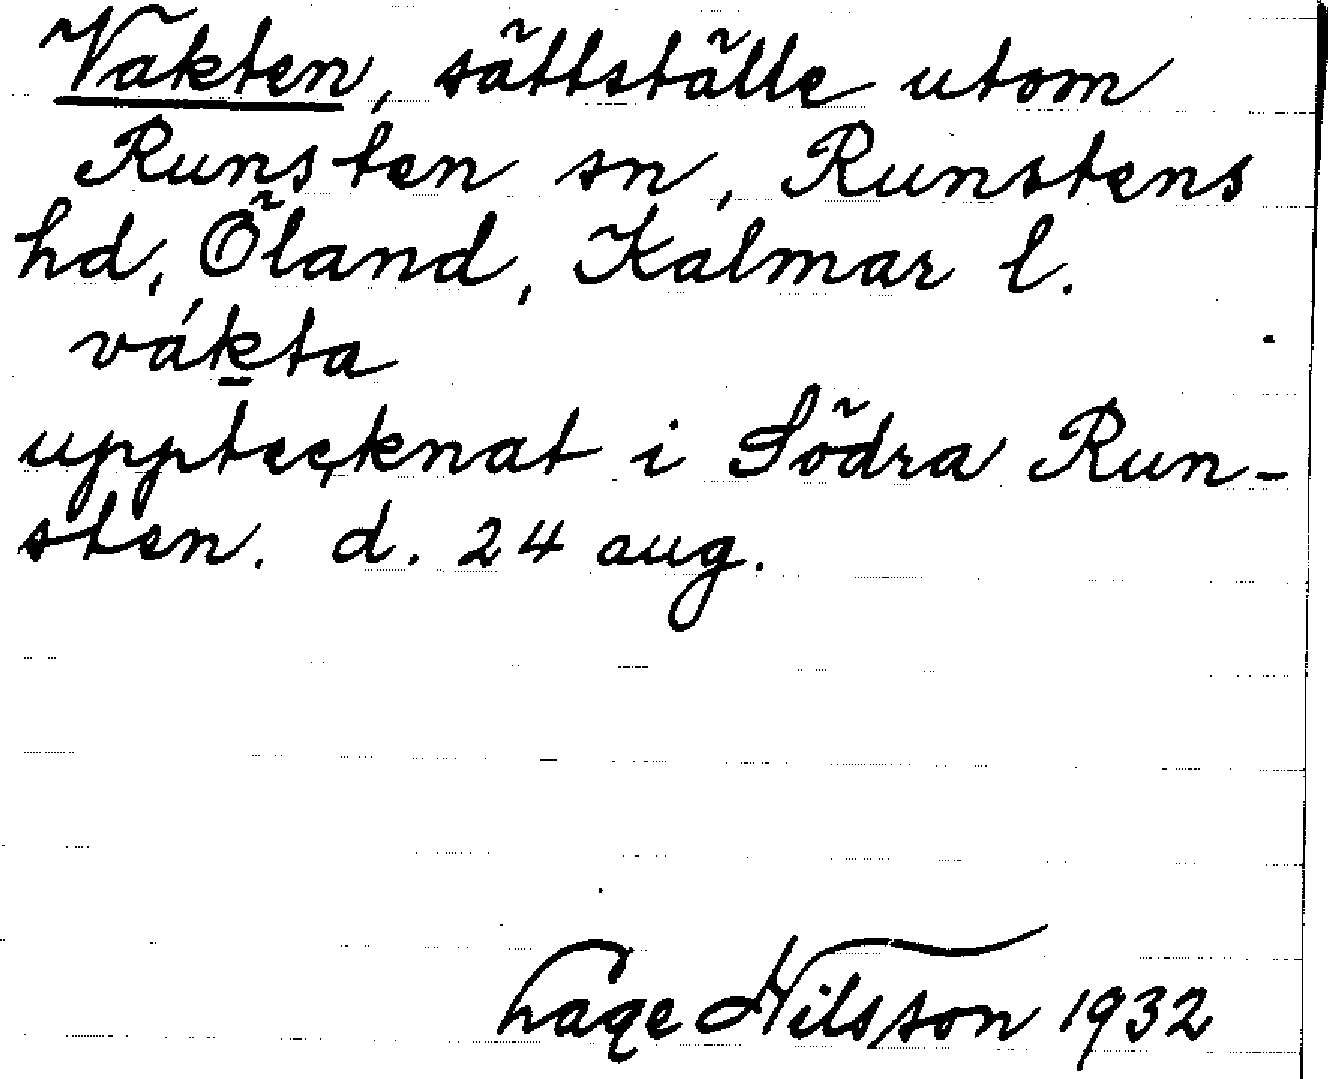 Vakten, sättställe utom
Runsten sn, Runstens
hd, Öland, Kalmar l.
vákta
upptecknat i Södra Run-
sten. d. 24 aug.
Lage Nilsson 1932